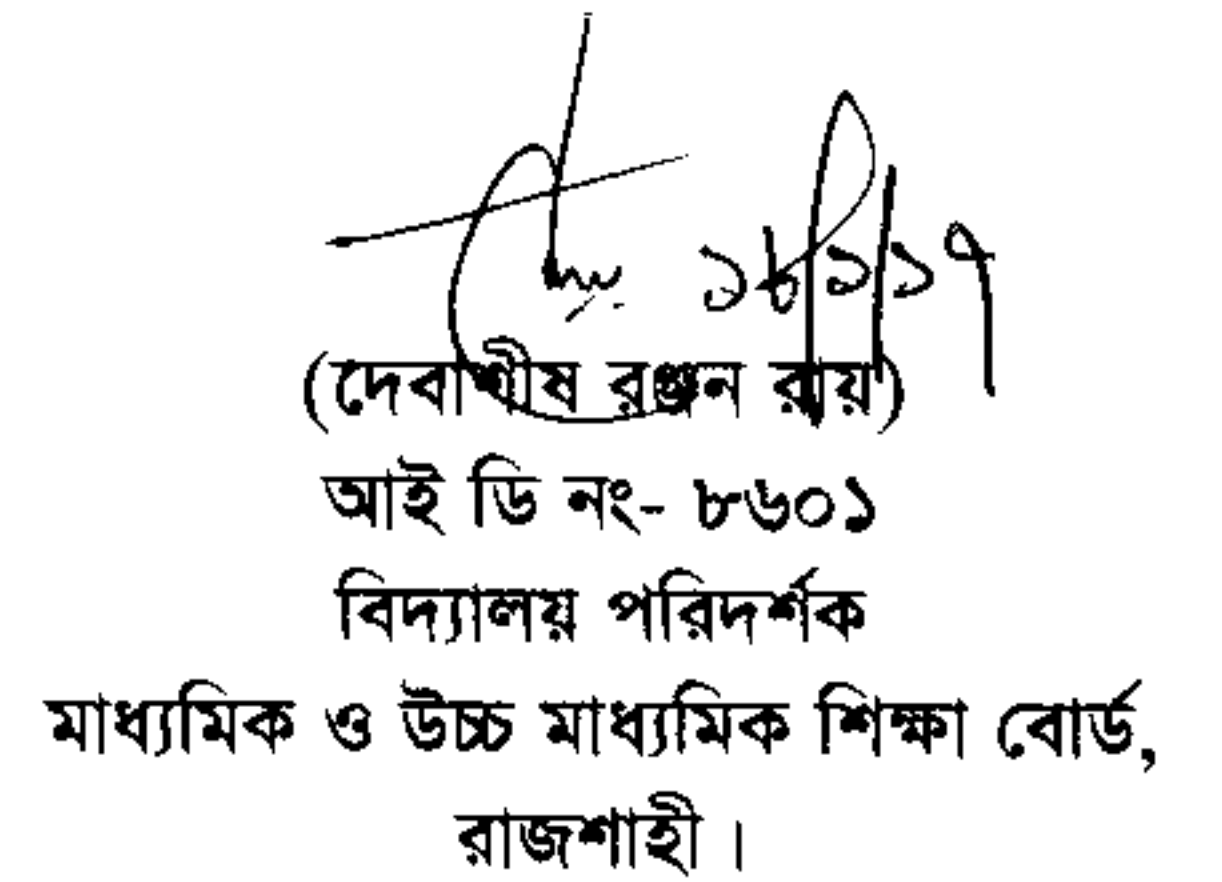 ১৮/১/১৭
(দেবাশীষ রঞ্জন রায়)
আই ডি নং- ৮৬০১
বিদ্যালয় পরিদর্শক
মাধ্যমিক ও উচ্চ মাধ্যমিক শিক্ষা বোর্ড,
রাজশাহী।